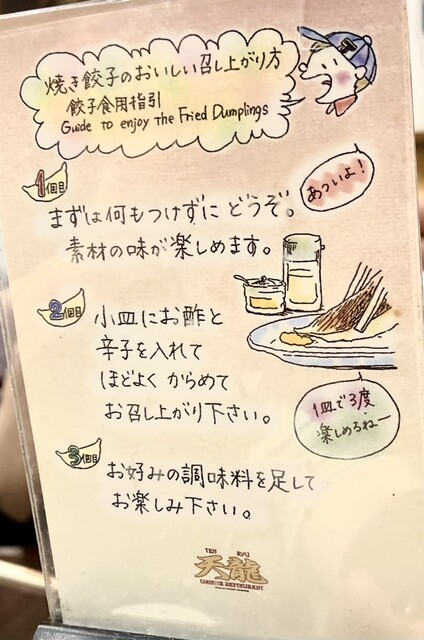 焼き餃子のおいしい召し上がり方
餃子食用指引
Guide to enjoy the Fried Dumplings
1個目
あついよ!
まずは何もつけずに どうぞ。
素材の味が楽しめます。
2個目
小皿にお酢と
辛子を入れて
ほどよく からめて
お召し上がり下さい。
1皿で3度
楽しめるねー
3個目
お好みの調味料を足して
お楽しみ下さい。
TEN RYU
天龍
CHINESE RESTAURANT